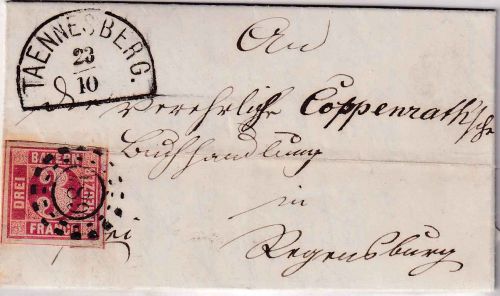 TAENNESBERG.
23
10
An
Die verehrliche Coppenrath'sche
Buchhandlung
in
frei Regensburg
BAYERN
DREI
KREUZER
FRANCO